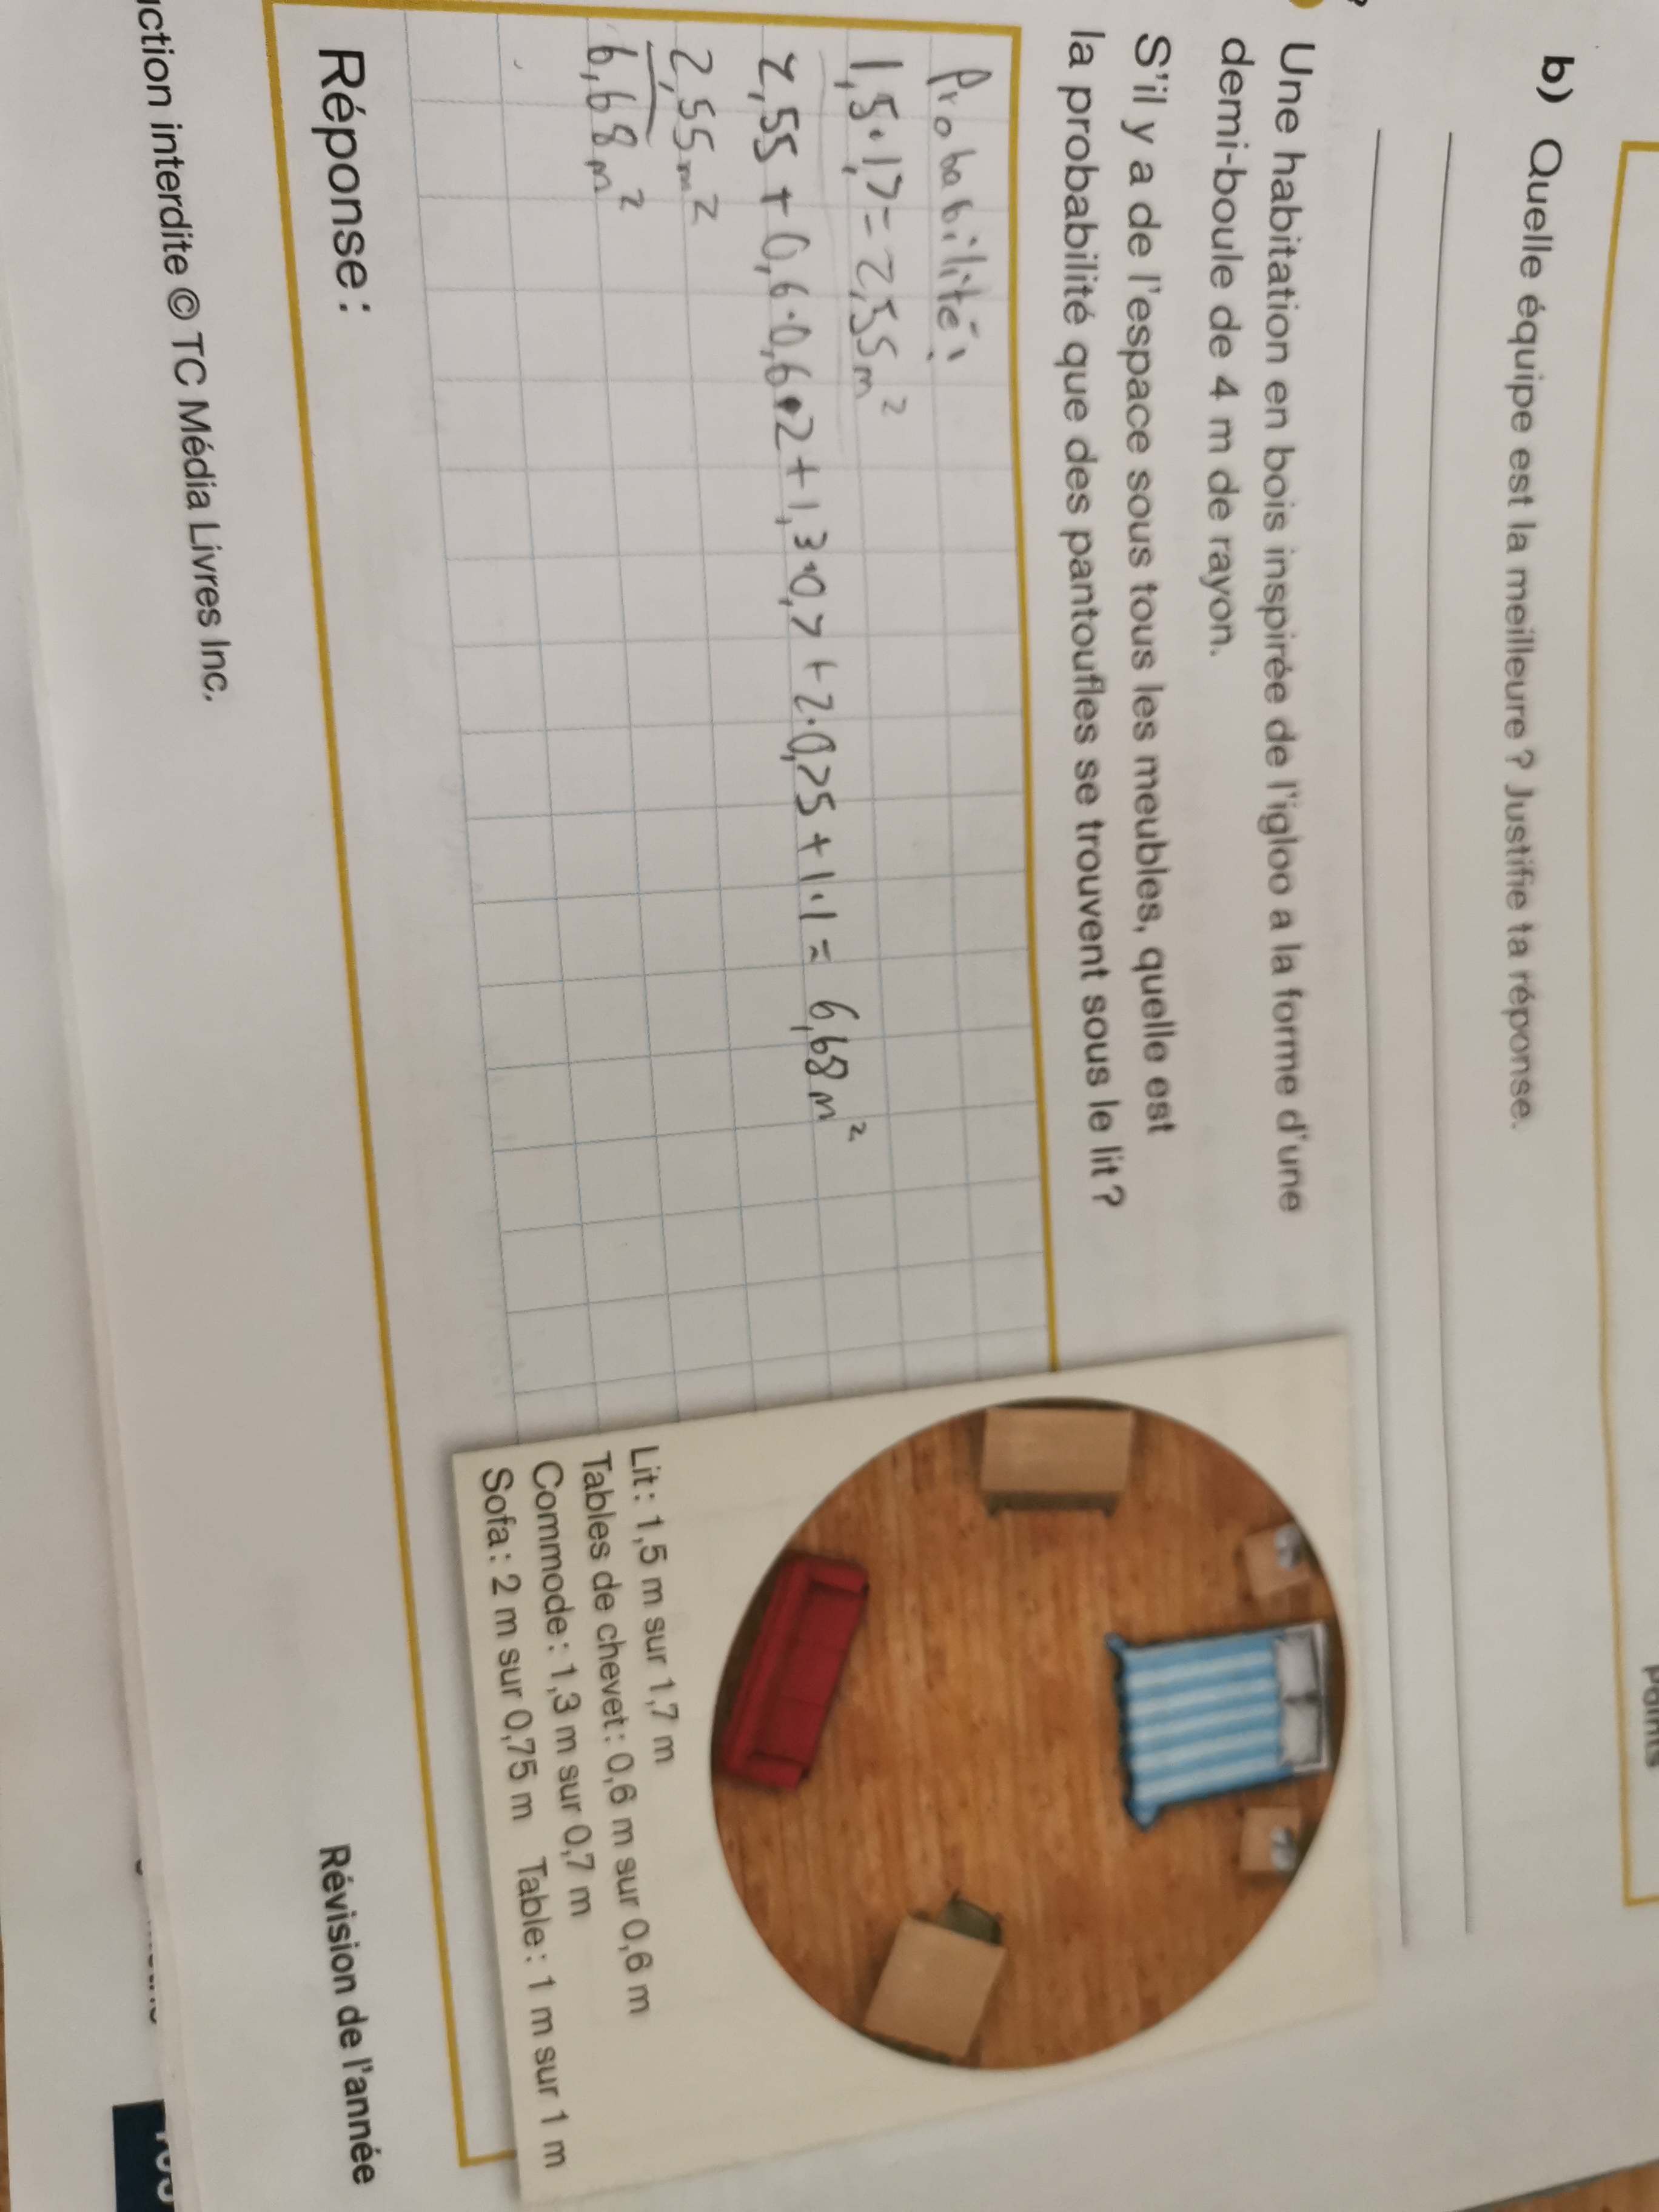 b) Quelle équipe est la meilleure ? Justifie ta réponse.
Une habitation en bois inspirée de l'igloo a la forme d'une
demi-boule de 4 m de rayon.
S'il y a de l'espace sous tous les meubles, quelle est
la probabilité que des pantoufles se trouvent sous le lit ?
Probabilité :
1,5·1,7=2,55m²
2,55+0,6·0,6·2+1,3·0,7+2·0,75+1·1= 6,68m²
2,55m²
6,68m²
Réponse :
Lit : 1,5 m sur 1,7 m
Tables de chevet : 0,6 m sur 0,6 m
Commode : 1,3 m sur 0,7 m
Sofa : 2 m sur 0,75 m Table : 1 m sur 1 m
interdite © TC Média Livres Inc.
Révision de l'année